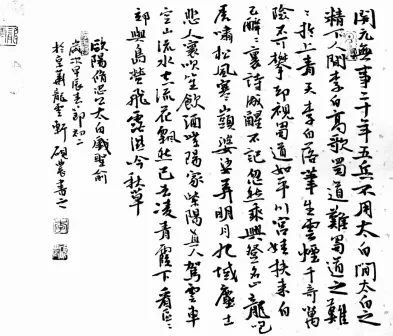 開元無事二十年五兵不用太白閒太白之
精下人間李白高歌蜀道難蜀道之難
々於上青天李白落筆生雲煙千奇萬
險不可攀却視蜀道如平川宮娃扶來白
已醉々裏詩成醒不記忽然乘興登名山龍咆
虎嘯松風寒山頭婆娑弄明月九域塵土
悲人寰吹笙飲酒紫陽家紫陽真人駕雲車
空山流水空流花飄然已去凌青霞下看區々
郊與島螢飛露濕吟秋草
歐陽脩公太白戲聖俞
歲次甲辰春節初二
於皇華龍雲軒硯農書之